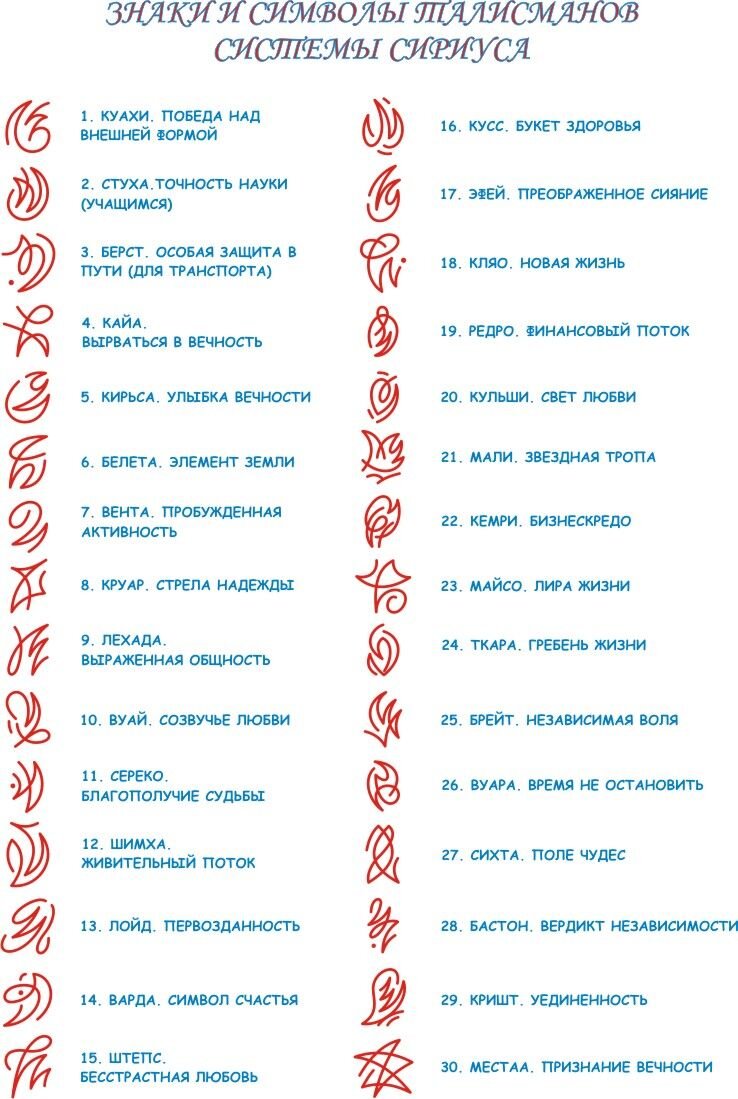 ЗНАКИ И СИМВОЛЫ ТАЛИСМАНОВ
СИСТЕМЫ СИРИУСА
1. КУАХИ. ПОБЕДА НАД
ВНЕШНЕЙ ФОРМОЙ
2. СТУХА.ТОЧНОСТЬ НАУКИ
(УЧАЩИМСЯ)
3. БЕРСТ. ОСОБАЯ ЗАЩИТА В
ПУТИ (ДЛЯ ТРАНСПОРТА)
4. КАЙА.
ВЫРВАТЬСЯ В ВЕЧНОСТЬ
5. КИРЬСА. УЛЫБКА ВЕЧНОСТИ
6. БЕЛЕТА. ЭЛЕМЕНТ ЗЕМЛИ
7. ВЕНТА. ПРОБУЖДЕННАЯ
АКТИВНОСТЬ
8. КРУАР. СТРЕЛА НАДЕЖДЫ
9. ЛЕХАДА.
ВЫРАЖЕННАЯ ОБЩНОСТЬ
10. ВУАЙ. СОЗВУЧЬЕ ЛЮБВИ
11. СЕРЕКО.
БЛАГОПОЛУЧИЕ СУДЬБЫ
12. ШИМХА.
ЖИВИТЕЛЬНЫЙ ПОТОК
13. ЛОЙД. ПЕРВОЗДАННОСТЬ
14. ВАРДА. СИМВОЛ СЧАСТЬЯ
15. ШТЕПС.
БЕССТРАСТНАЯ ЛЮБОВЬ
16. КУСС. БУКЕТ ЗДОРОВЬЯ
17. ЭФЕЙ. ПРЕОБРАЖЕННОЕ СИЯНИЕ
18. КЛЯО. НОВАЯ ЖИЗНЬ
19. РЕДРО. ФИНАНСОВЫЙ ПОТОК
20. КУЛЬШИ. СВЕТ ЛЮБВИ
21. МАЛИ. ЗВЕЗДНАЯ ТРОПА
22. КЕМРИ. БИЗНЕСКРЕДО
23. МАЙСО. ЛИРА ЖИЗНИ
24. ТКАРА. ГРЕБЕНЬ ЖИЗНИ
25. БРЕЙТ. НЕЗАВИСИМАЯ ВОЛЯ
26. ВУАРА. ВРЕМЯ НЕ ОСТАНОВИТЬ
27. СИХТА. ПОЛЕ ЧУДЕС
28. БАСТОН. ВЕРДИКТ НЕЗАВИСИМОСТИ
29. КРИШТ. УЕДИНЕННОСТЬ
30. МЕСТАА. ПРИЗНАНИЕ ВЕЧНОСТИ